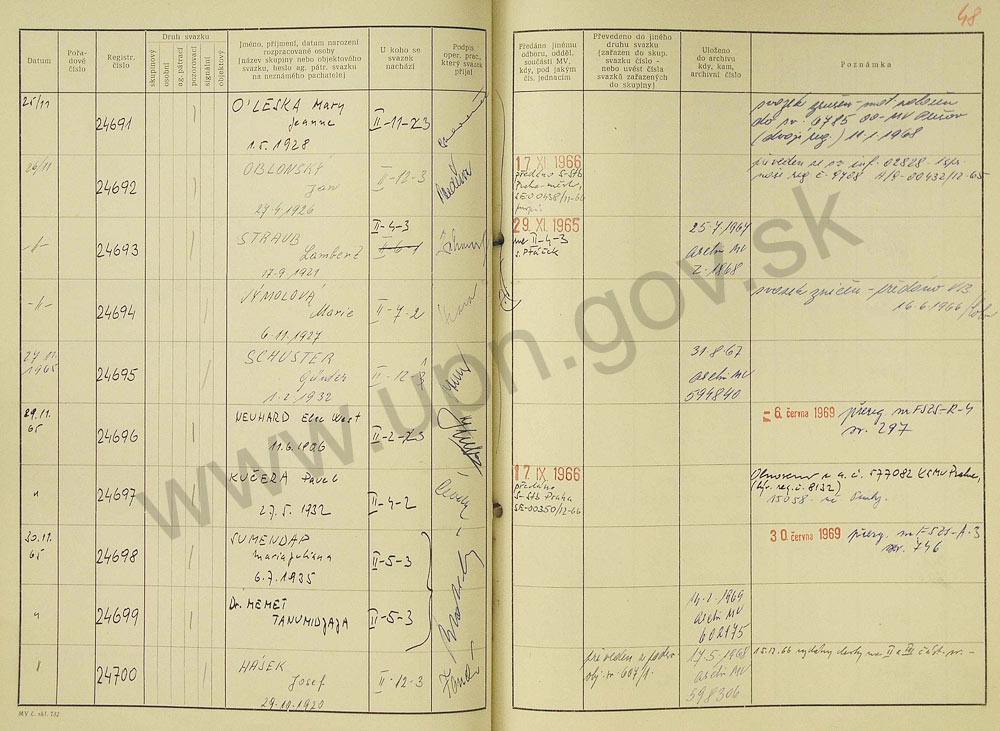 48
Datum
Pořa-
dové
číslo
Registr.
číslo
Druh svazku
skupinový
osobní
ag. pátrací
pozorovací
signální
objektový
Jméno, příjmení, datum narození
rozpracované osoby
(název skupiny nebo objektového
svazku, heslo ag. pátr. svazku
na neznámého pachatele)
U koho se
svazek
nachází
Podpis
oper. prac.,
který svazek
přijal
Předáno jinému
odboru, odděl.
součásti MV,
kdy, pod jakým
čís. jednacím
Převedeno do jiného
druhu svazku
(zařazen do skup.
svazku číslo -
nebo uvést čísla
svazků zařazených
do skupiny)
Uloženo
do archivu
kdy, kam,
archivní číslo
Poznámka
25/11
24691
O'LESKA Mary
Jeanne
1.5.1928
II-11-23
svazek zničen - mat. založen
do sv. 0785 00-MV
(dvojí reg.) 11.1.1968
26/11
24692
OBLONSKÝ
Jan
27.4.1926
II-12-3
17. XI. 1966
předáno S-StB
Praha-město,
převeden sv. inf. 02828
A/9-00432/12-65
-"-
24693
STRAUB
Lambert
17.9.1921
II-4-3
II-6-1
29. XI. 1965
na II-4-3
s. Ptáček
25-7-1967
Archiv MV
Z-1868
-"-
24694
VÝMOLOVÁ
Marie
6.11.1927
II-7-2
svazek zničen - předáno VB
16.6.1966
27.11.
1965
24695
SCHUSTER
Günter
1.2.1932
II-12-3
31.8.67
Archiv MV
594840
29.11.
65
24696
NEUHARD Else West
11.6.1906
II-2-23
6. června 1969 přereg. na FSZS-R-4
sv. 297
"
24697
KUČERA Pavel
27.5.1932
II-4-2
17. IX. 1966
předáno
S-StB Praha
SE-00350/12-66
Obnoveno č. 577082 KSMV Praha,
reg. č. 8132)
15058
30.11.
65
24698
SUMENDAP
Maria Juliana
6.7.1935
II-5-3
30. června 1969 přereg. na FSZS-A-3
sv. 746
"
24699
Dr. MEMET
TANUMIDJAJA
II-5-3
14.1.1969
Archiv MV
602175
24700
HÁJEK
Josef
29.10.1920
II-12-3
převeden z
obj. sv. 607/1.
17.5.1968
Archiv MV
598306
15.12.66 na II a III část sv. -
MV č. skl. 732
www.upn.gov.sk